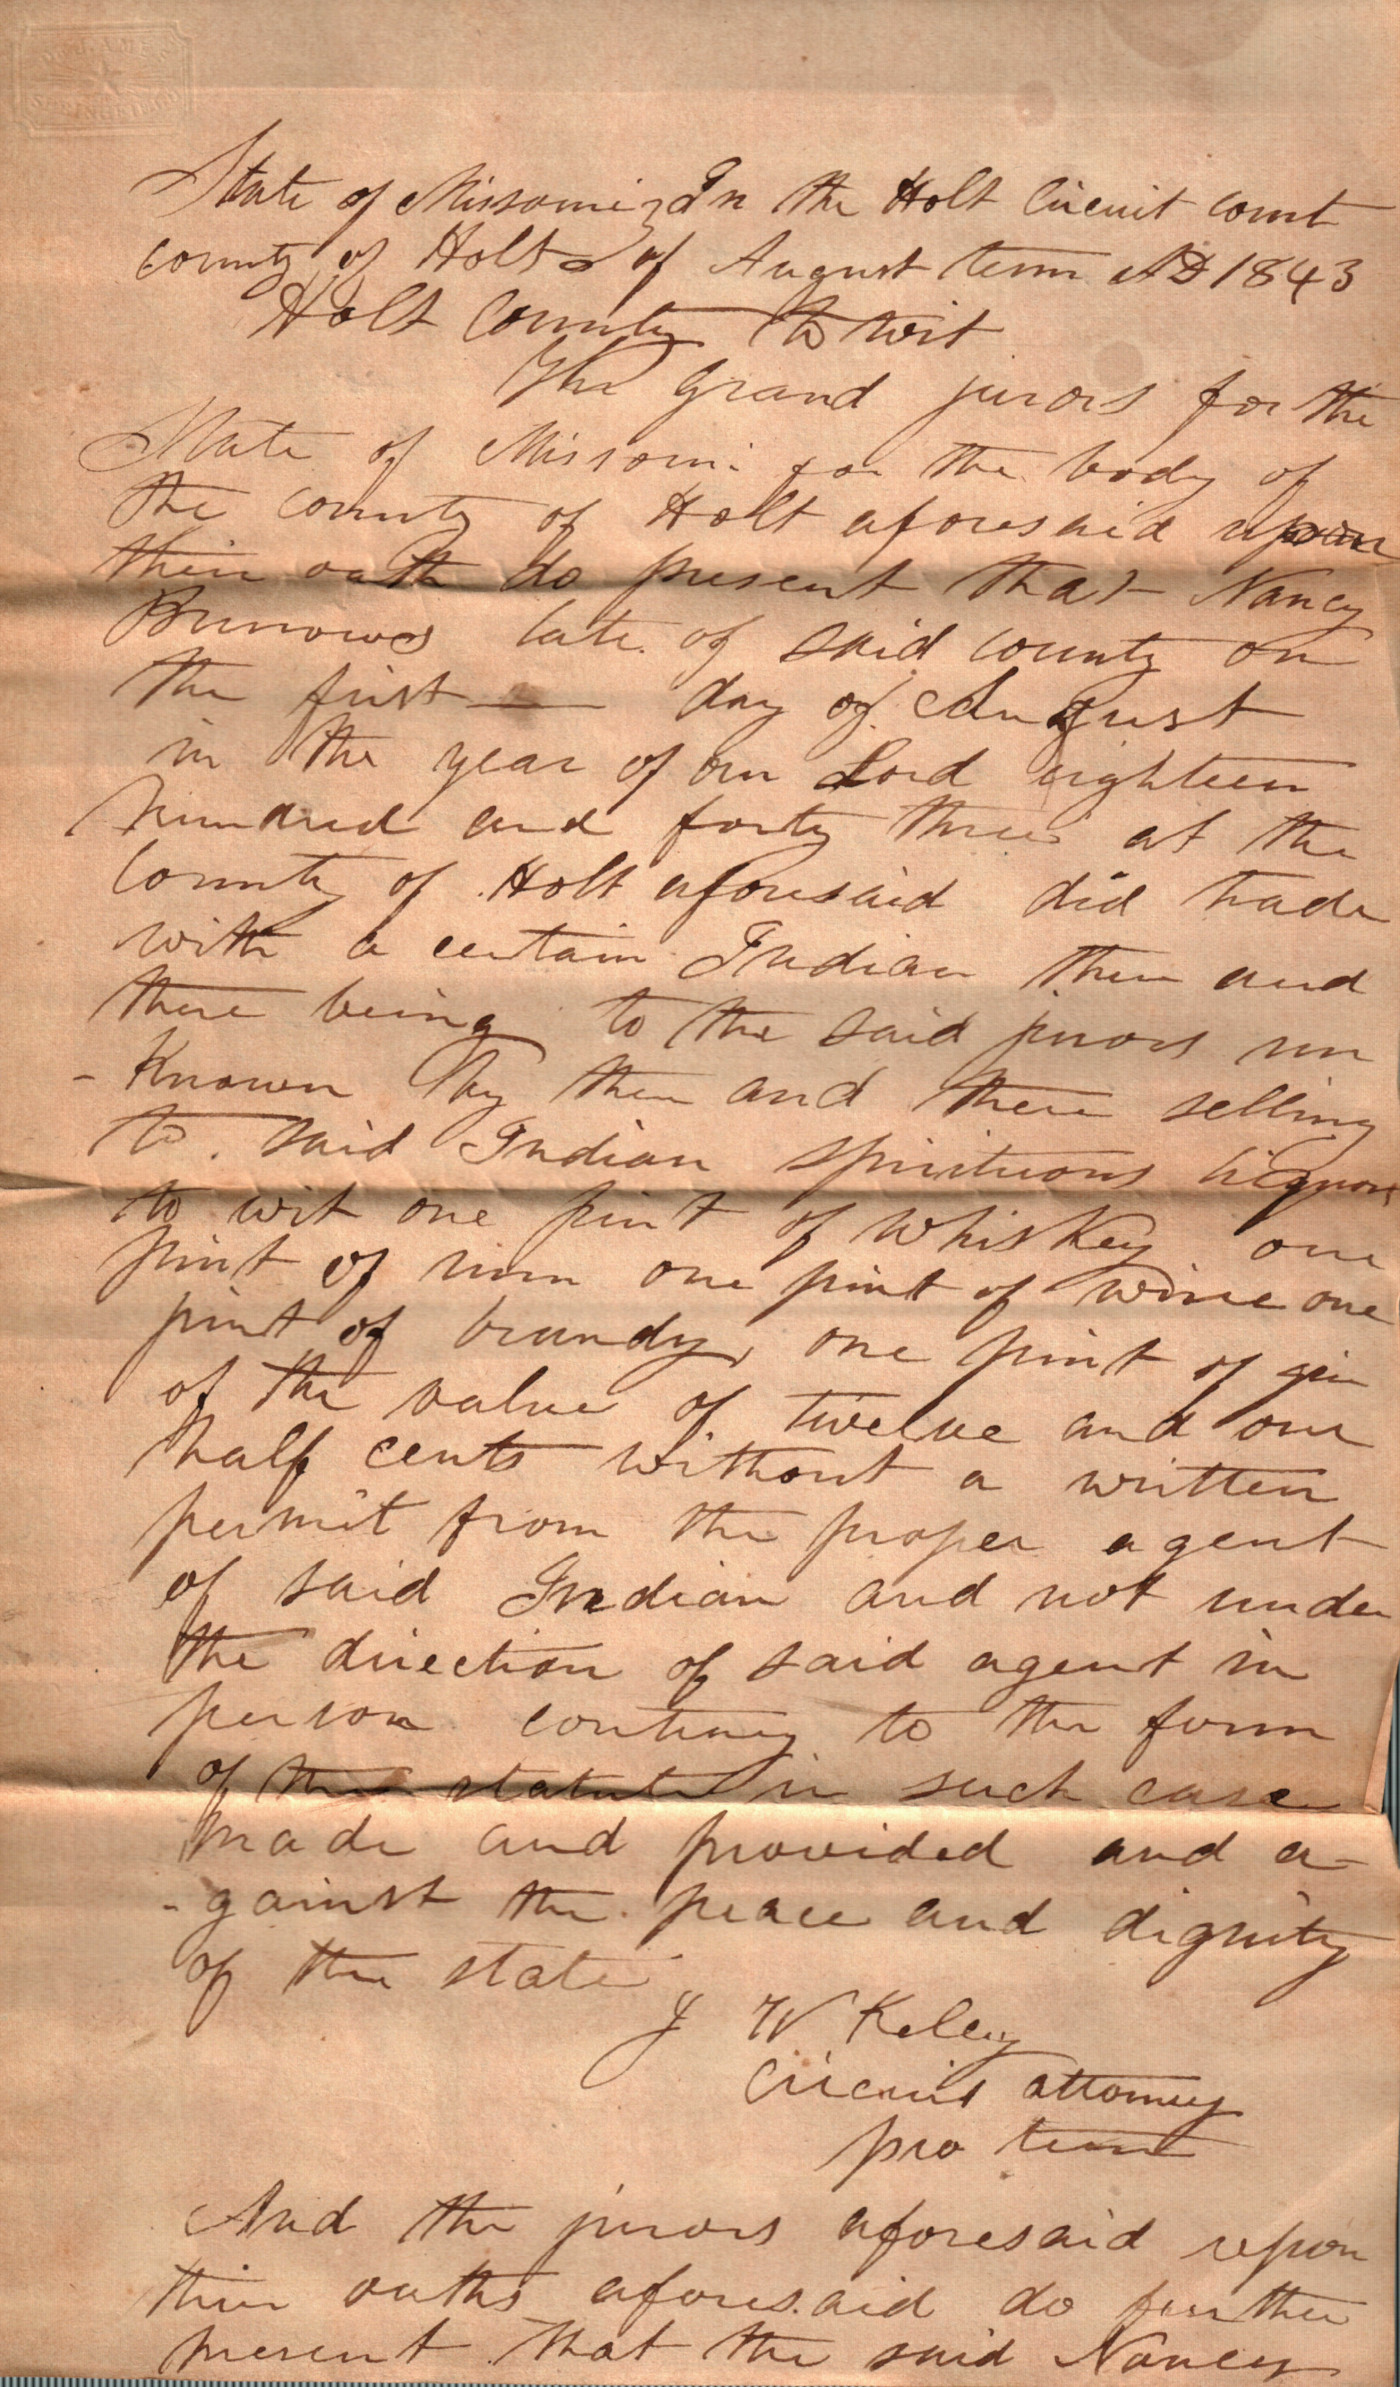 D. & J. AMES
SPRINGFIELD
State of Missouri } In the Holt Circuit court
county of Holt } of August term AD 1843
Holt County to wit
The Grand jurors for the
State of Missouri for the body of
the county of Holt aforesaid upon
their oath do present that Nancy
Burrows late of said county on
the first — day of August
in the year of our Lord eighteen
hundred and forty three at the
County of Holt aforesaid did trade
with a certain Indian then and
there being to the said jurors un
- Known by then and there selling
to said Indian spirituous liquors
to wit one pint of whiskey one
pint of rum one pint of wine one
pint of brandy, one pint of gin
of the value of twelve and one
half cents without a written
permit from the proper agent
of said Indian and not under
the direction of said agent in
person contrary to the form
of the statute in such case
made and provided and a-
-gainst the peace and dignity
of the state
J W Kelley
Circuit attorney
pro tem
And the jurors aforesaid upon
their oaths aforesaid do further
present that the said Nancy